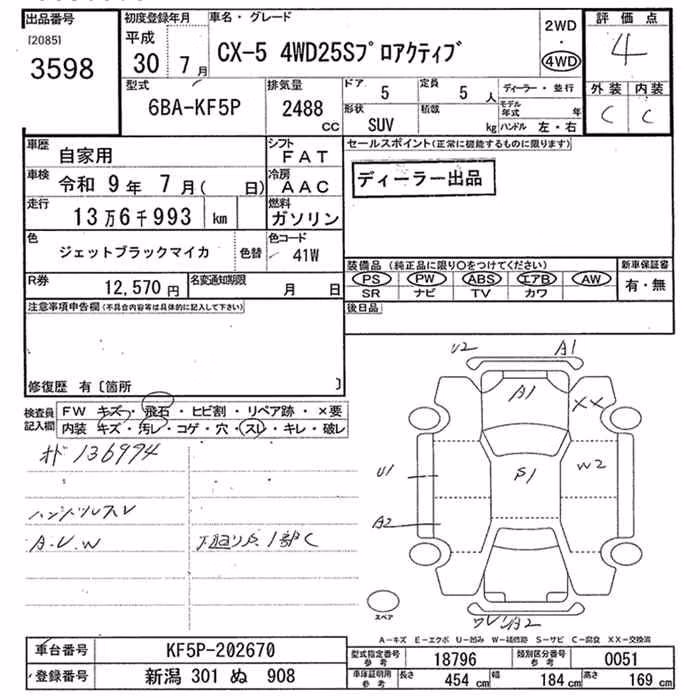 出品番号
[2085]
3598
初度登録年月
平成
30 7月
車名・グレード
CX-5 4WD25Sプロアクティブ
2WD
・
4WD
評価点
4
外装 内装
C C
型式
6BA-KF5P
排気量
2488
CC
ドア 5
定員 5 人
形状 SUV
積載 kg
ディーラー・並行
モデル年式 年
ハンドル 左・右
車歴 自家用
シフト FAT
車検 令和 9年 7月( 日)
冷房 AAC
走行 13万6千993 km
燃料 ガソリン
色 ジェットブラックマイカ 色替
色コード 41W
R券 12,570円
名変通知期限 月 日
セールスポイント(正常に機能するものに限ります)
ディーラー出品
装備品 (純正品に限り○をつけてください)
PS PW ABS エアB AW
SR ナビ TV カワ
新車保証書
有・無
後日品
注意事項申告欄(不具合内容等は具体的に記入して下さい)
修復歴 有〔箇所 〕
検査員記入欄
FW キズ・飛石・ヒビ割・リペア跡・×要
内装 キズ・汚レ・コゲ・穴・スレ・キレ・破レ
オド 136994
ハンドルスレ
A.U.W
下廻りサビ 1部C
U2 A1
A1
XX
U1
S1
W2
A2
スペア
A2
A-キズ E-エクボ U-凹み W-補修跡 S-サビ C-腐食 XX-交換済
車台番号 KF5P-202670
登録番号 新潟 301 ぬ 908
型式指定番号 参考 18796
類別区分番号 参考 0051
車庫証明用 参考 長さ 454 cm 幅 184 cm 高さ 169 cm